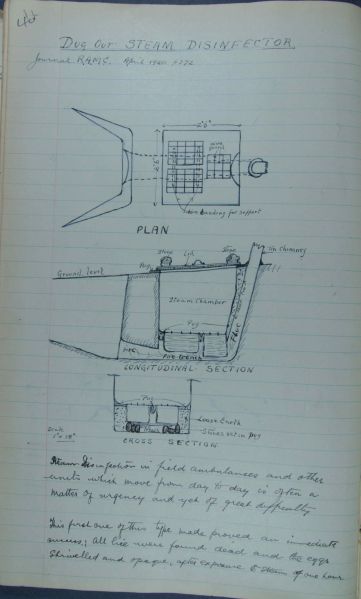 Dug Out STEAM DISINFECTOR.
Journal R.A.M.C. April
2'6"
2'6"
Iron banding for support
PLAN
Stone Lid Stone
Tin chimney
Ground level
Rug
Steam Chamber
Flue
Pug
Fire
LONGITUDINAL SECTION
Pug
Loose Earth
Stones set in Pug
Scale
CROSS SECTION
Steam Disinfection in field ambulances and other
units which move from day to day is often a
matter of urgency and yet of great difficulty
This first one of this type made proved an immediate
success; All lice were found dead and the eggs
shrivelled and opaque, after exposure to steam of one hour